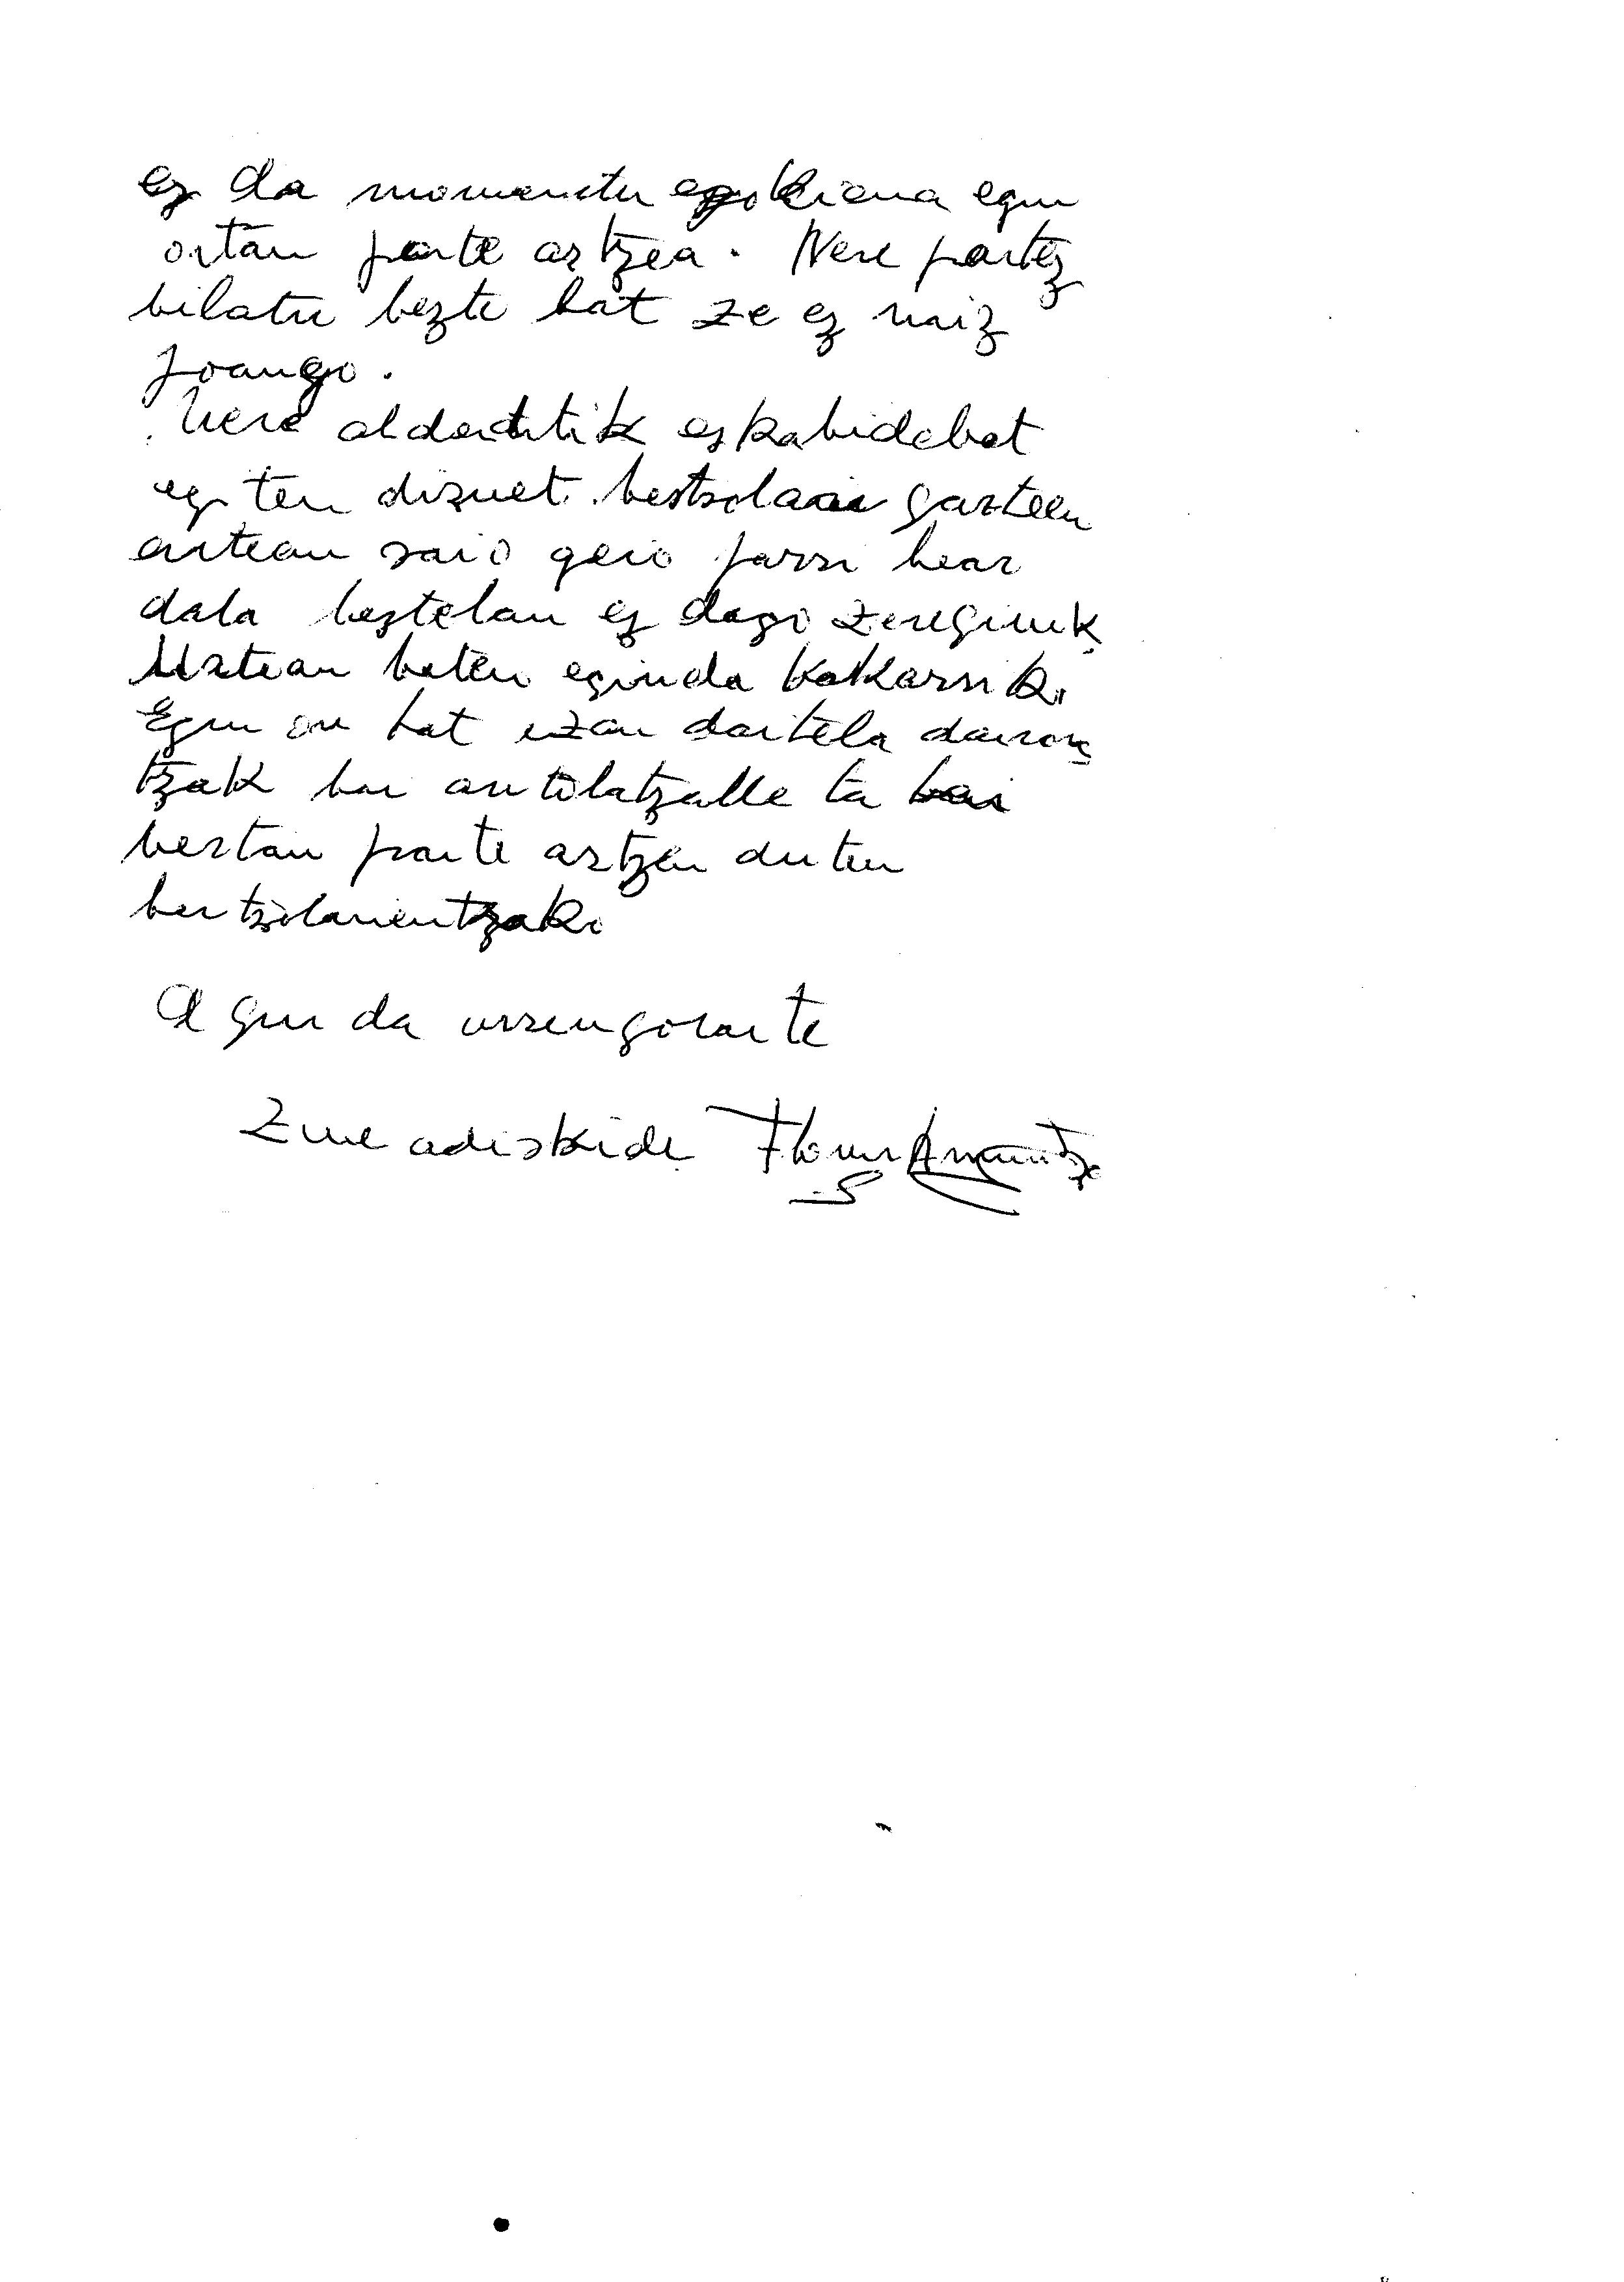 ez da momentu egokiena egun
ortan parte artzea. Nere partez
bilatu bezte bat ze ez naiz
joango.
Nere aldedetik ezkabidebat
egiten dizuet. bertsolaai gazteen
artean saio geio jarri bear
dala beztelan ez dago zereginik
Urtean baten eginda kakarrik.
Egun on bat izan daitela danon
tzak bai antolatzalle ta bai
bertan parte artzen duten
bertzolarientzak.
Agur da urrengorarte
Zure adiskide